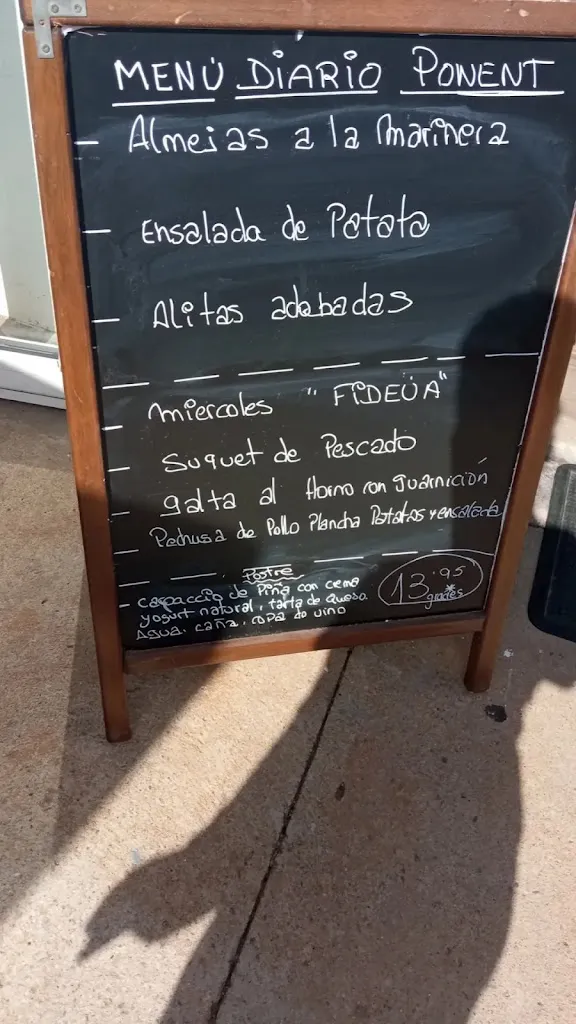 MENÚ DIARIO PONENT
- Almejas a la marinera
- Ensalada de Patata
- Alitas adobadas
- miercoles "FIDEÜA"
- Suquet de Pescado
- galta al Horno con guarnición
- Pechuga de Pollo Plancha Patatas y ensalada
- Postre
- carpaccio de Piña con crema
yogurt natural, tarta de queso.
Agua, caña, copa de vino
13'95
gracies